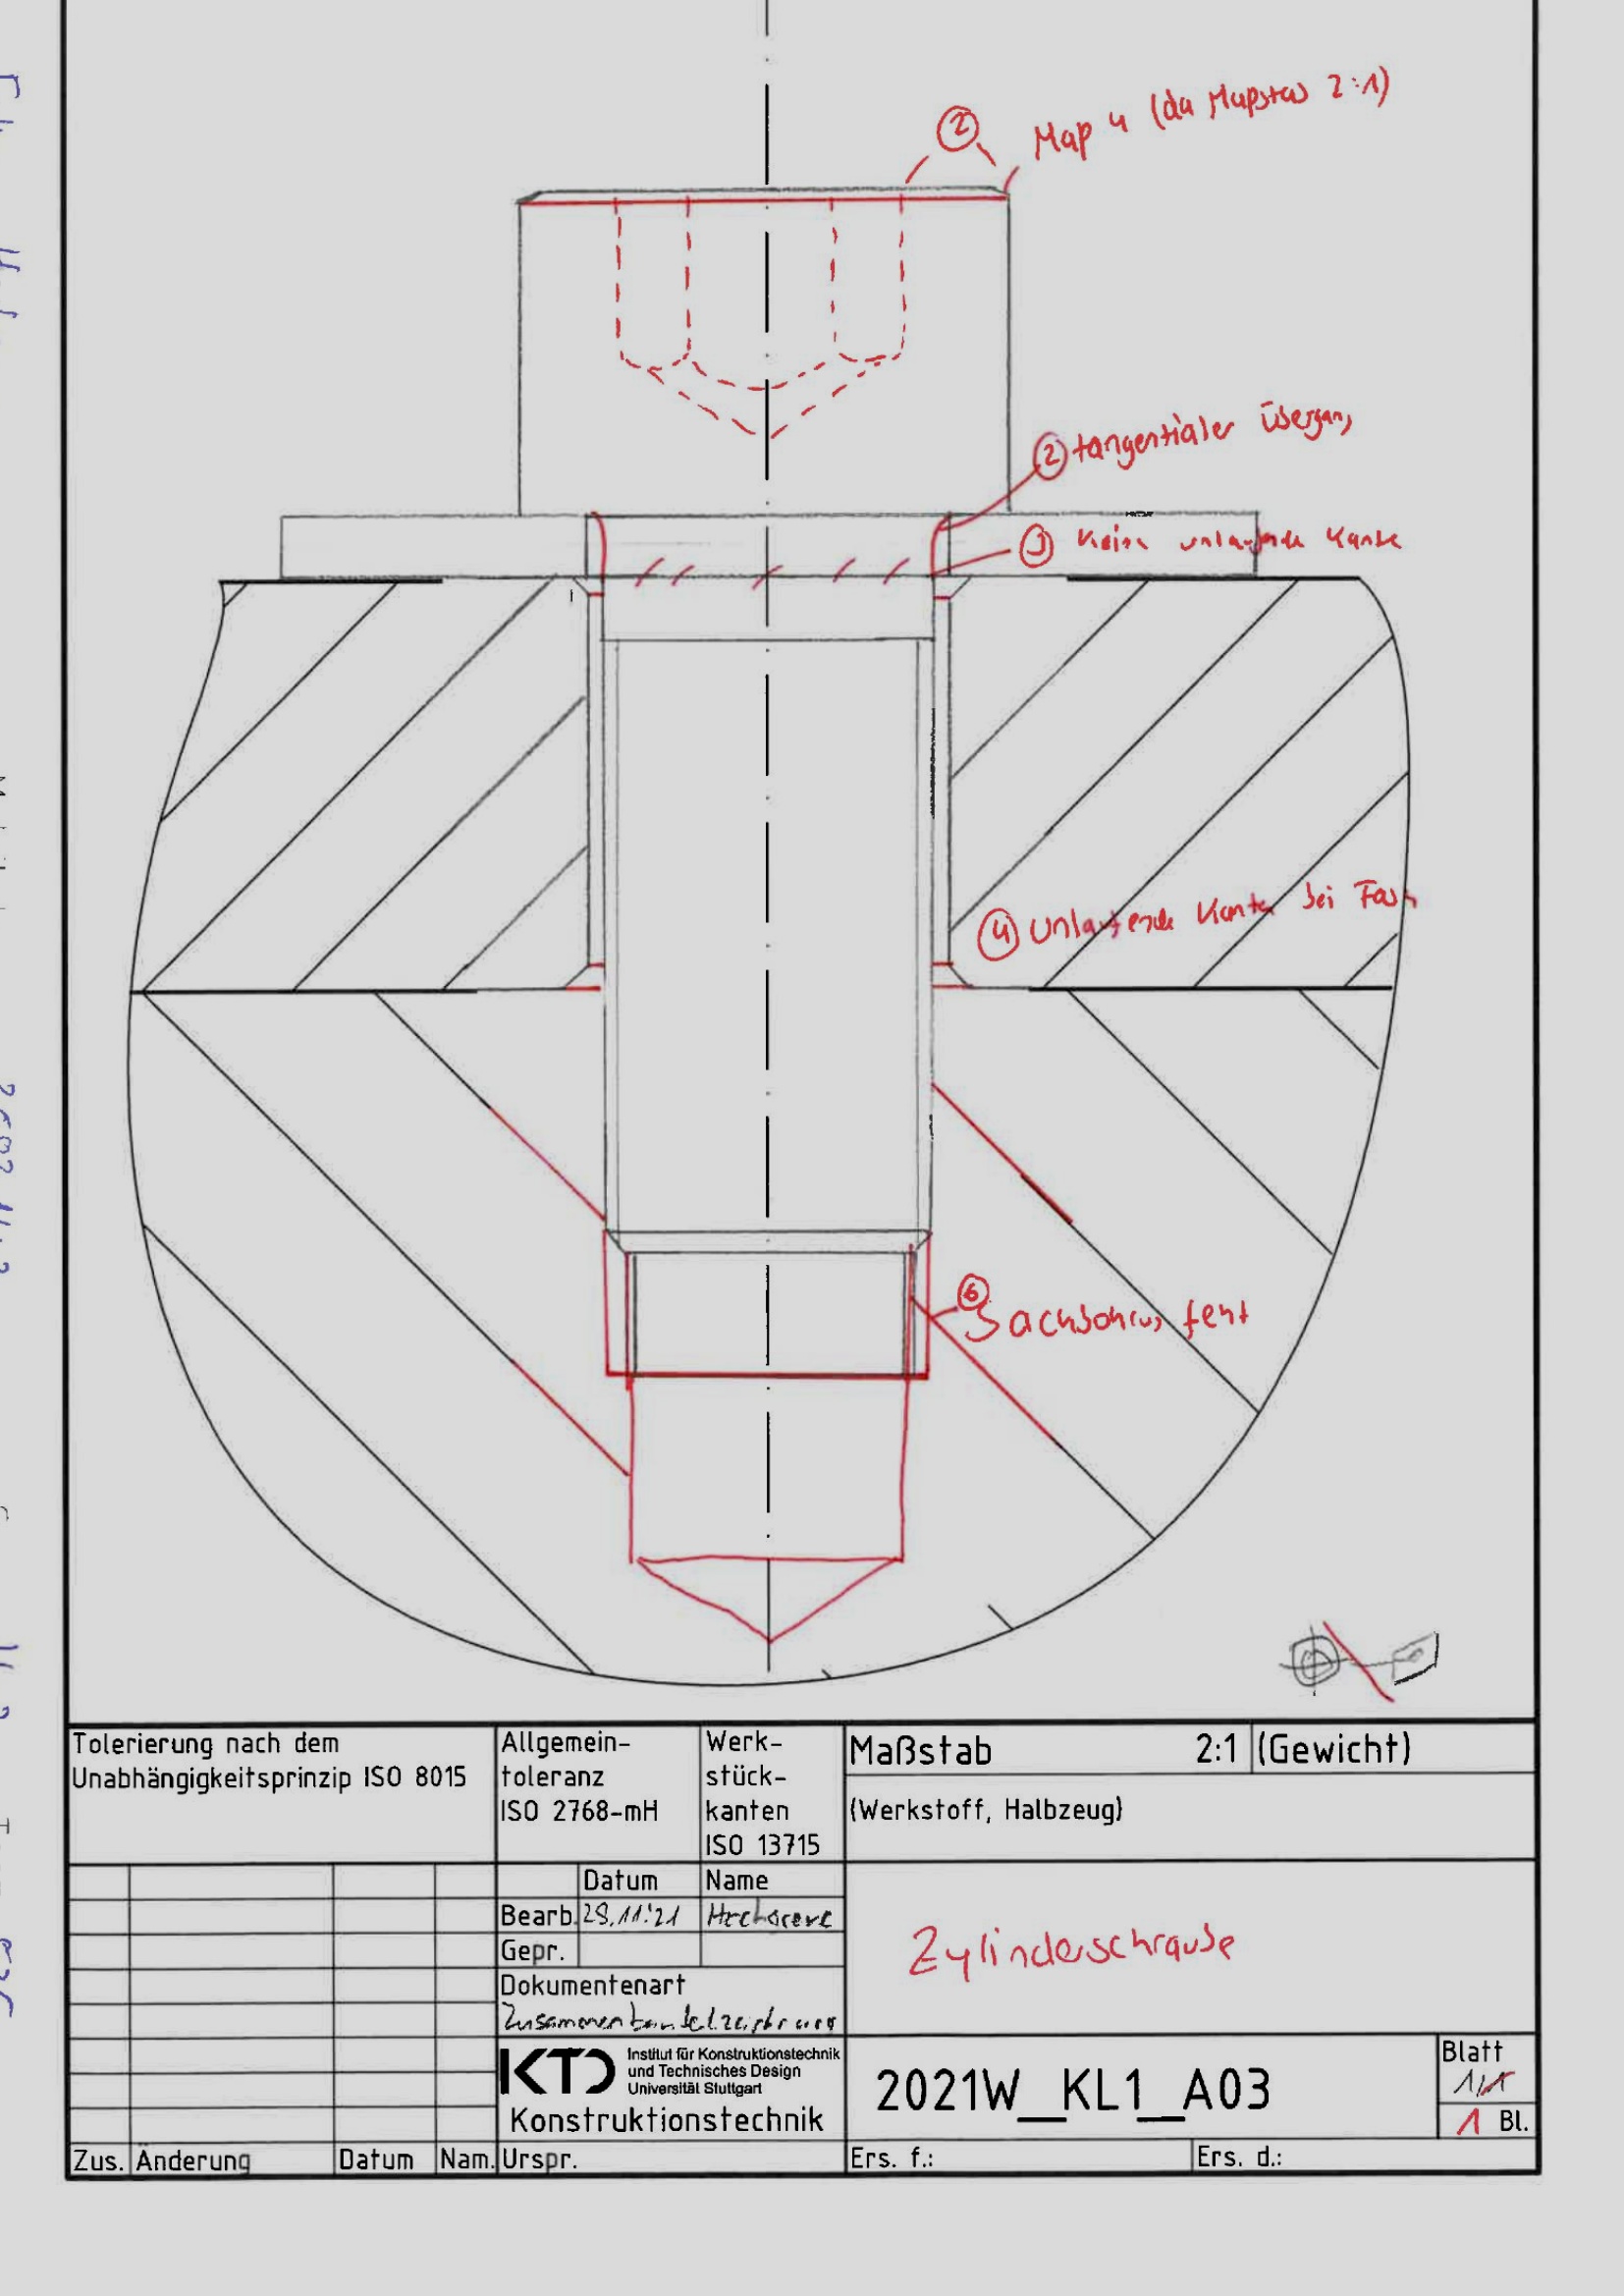 ②
Maß 4 (da Maßstab 2:1)
② tangentialer Übergang
③ Keine umlaufende Kante
④ Umlaufende Kante bei Fase
⑥
Sackbohrung fehlt
Tolerierung nach dem
Unabhängigkeitsprinzip ISO 8015
Allgemein-
toleranz
ISO 2768-mH
Werk-
stück-
kanten
ISO 13715
Maßstab 2:1 (Gewicht)
(Werkstoff, Halbzeug)
Datum Name
Bearb. 29.11.'21
Gepr.
Dokumentenart
Zylinderschraube
KTD Institut für Konstruktionstechnik
und Technisches Design
Universität Stuttgart
Konstruktionstechnik
2021W_KL1_A03
Blatt
1/1
1 Bl.
Zus. Änderung Datum Nam. Urspr. Ers. f.: Ers. d.: